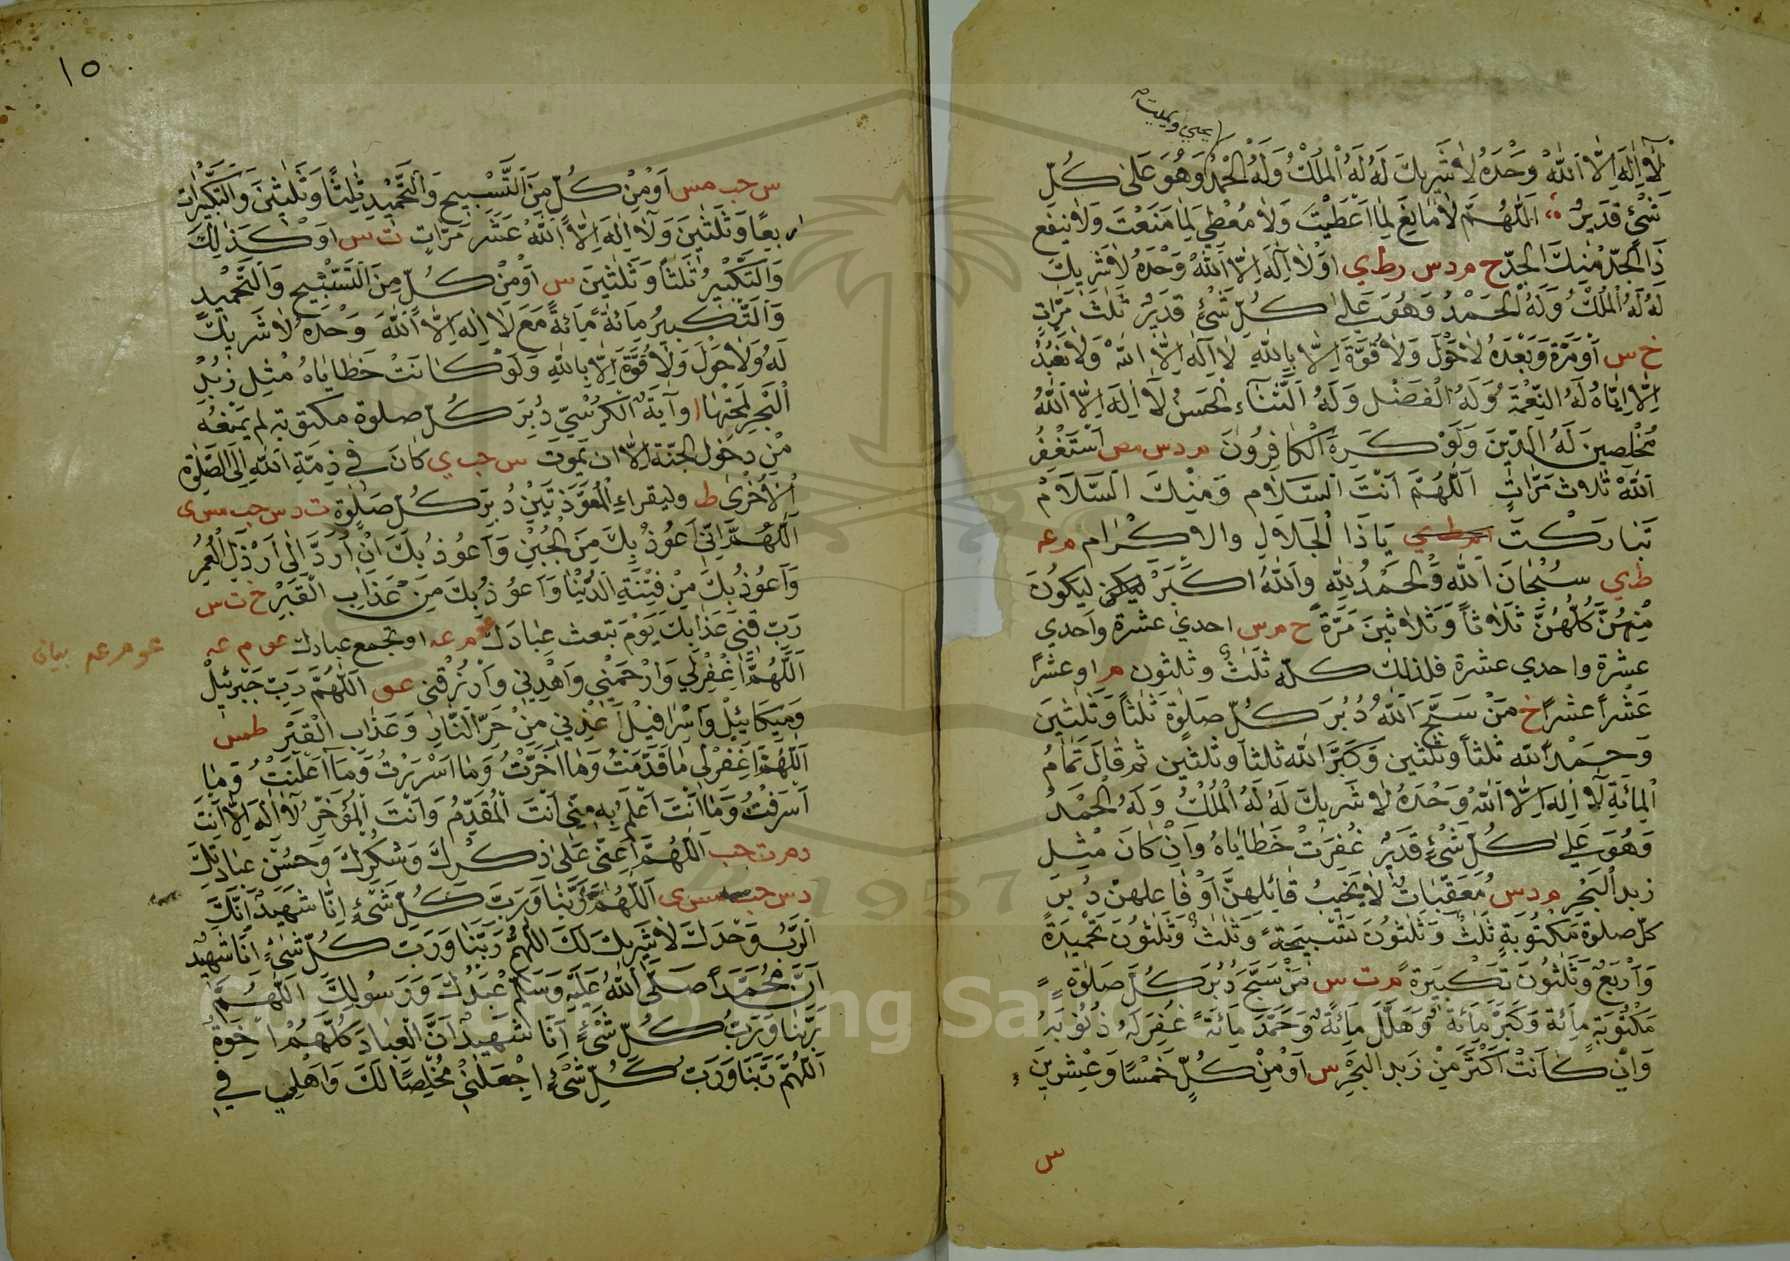 يحيي ويميت
لَا إِلَهَ إِلَّا اللهُ وَحْدَهُ لَا شَرِيكَ لَهُ لَهُ الْمُلْكُ وَلَهُ الْحَمْدُ وَهُوَ عَلَى كُلِّ
شَيْءٍ قَدِيرٌ اللَّهُمَّ لَا مَانِعَ لِمَا أَعْطَيْتَ وَلَا مُعْطِيَ لِمَا مَنَعْتَ وَلَا يَنْفَعُ
ذَا الْجَدِّ مِنْكَ الْجَدُّ خ م د س ر ط ي أو لَا إِلَهَ إِلَّا اللهُ وَحْدَهُ لَا شَرِيكَ
لَهُ لَهُ الْمُلْكُ وَلَهُ الْحَمْدُ وَهُوَ عَلَى كُلِّ شَيْءٍ قَدِيرٌ ثَلَثَ مَرَّاتٍ
خ س أَوْ مَرَّةً وَبَعْدَهُ لَا حَوْلَ وَلَا قُوَّةَ إِلَّا بِاللهِ لَا إِلَهَ إِلَّا اللهُ وَلَا نَعْبُدُ
إِلَّا إِيَّاهُ لَهُ النِّعْمَةُ وَلَهُ الْفَضْلُ وَلَهُ الثَّنَاءُ الْحَسَنُ لَا إِلَهَ إِلَّا اللهُ
مُخْلِصِينَ لَهُ الدِّينَ وَلَوْ كَرِهَ الْكَافِرُونَ م د س مص أَسْتَغْفِرُ
اللهَ ثَلَاثَ مَرَّاتٍ اللَّهُمَّ أَنْتَ السَّلَامُ وَمِنْكَ السَّلَامُ
تَبَارَكْتَ يَا ذَا الْجَلَالِ والاكْرَام م عه
ط ي سُبْحَانَ اللهِ وَالْحَمْدُ لِلهِ وَاللهُ أَكْبَرُ ليكون
مِنْهُنَّ كُلُّهُنَّ ثَلَاثًا وَثَلَاثِينَ مَرَّةً خ م س احدي عشرة واحدي
عشرة واحدي عشرة فذلك كله ثَلَثٌ وثلثون م او عشرًا
عَشْرًا عشرًا خ مَنْ سَبَّحَ اللهَ دُبُرَ كُلِّ صَلوةٍ ثَلثًا وَثَلثِينَ
وَحَمِدَ اللهَ ثلثًا وثلثين وَكَبَّرَ الله ثلثًا وثلثين ثم قَالَ تَمَامُ
الْمِائَةِ لَا إِلهَ إِلَّا اللهُ وَحْدَهُ لَا شَرِيكَ لَهُ لَهُ الْمُلْكُ وَلَهُ الْحَمْدُ
وَهُوَ عَلى كُلِّ شَيْءٍ قَدِيرٌ غُفِرَتْ خَطَايَاهُ وَإِنْ كَانَ مِثْلَ
زبد الْبَحْرِ م د س مُعَقِّبَاتٌ لَا يَخِيبُ قَائِلهنَّ أَوْ فَاعلهنّ دُبُرَ
كلّ صلوة مَكْتُوبَةٍ ثَلَثٌ وَثَلَثُونَ تَسْبِيحَةً وَثَلَثٌ وَثَلَثُونَ تَحْمِيدَةً
وَأَرْبَعٌ وَثَلَثُونَ تَكْبِيرَةً م ت س مَنْ سَبَّحَ دُبُرَ كُلِّ صَلوةٍ
مَكْتُوبَةٍ مِائَةً وَكَبَّرَ مِائَةً وَهَلَّلَ مِائَةً وَحَمِدَ مِائَةً غُفِرَ لَهُ ذُنُوبُهُ
وَإِنْ كَانَتْ أَكْثَرَ مِنْ زَبَدِ الْبَحْرِ س أَوْ مِنْ كُلٍّ خَمْسًا وَعِشْرِينَ
س
١٥
س حب مس أَوْ مِنْ كُلٍّ مِنَ التَّسْبِيحِ وَالتَّحْمِيدِ ثَلثًا وَثَلثِينَ وَالتَّكْبِيرَاتِ
اربعًا وَثَلثِينَ وَلَا إِلهَ إِلَّا اللهُ عَشْرَ مَرَّاتٍ ت س أوْ كَذلِكَ
وَالتَّكْبِيرُ ثَلثًا وَثَلثِينَ س أَوْ مِنْ كُلٍّ مِنَ التَّسْبِيحِ وَالتَّحْمِيدِ
وَالتَّكْبِيرِ مِائَةً مِائَةً مَعَ لَا إِلهَ إِلَّا اللهُ وَحْدَهُ لَا شَرِيكَ
لَهُ وَلَا حَوْلَ وَلَا قُوَّةَ إِلَّا بِاللهِ وَلَوْ كَانَتْ خَطَايَاهُ مِثْلَ زَبَدِ
الْبَحْرِ لَمَحَتْهَا ا وآيَةُ الْكُرْسِيِّ دُبُرَ كُلِّ صلوة مكتوبة لم يَمْنَعْهُ
مِنْ دخُولِ الجَنَّة إلَّا ان يَمُوتَ س حب ي كَانَ في ذِمَّةِ اللهِ إِلَى الصَّلوةِ
الْأُخْرَى ط وليقراء الْمُعَوِّذَتَيْنِ دُبُرَ كُلِّ صَلوةٍ ت د س حب مس ى
اللَّهُمَّ إِنِّي أَعُوذُ بِكَ مِنَ الْجُبْنِ وَأَعُوذُ بِكَ أَنْ أُرَدَّ إِلَى أَرْذَلِ الْعُمُرِ
وَأَعُوذُ بِكَ مِنْ فِتْنَةِ الدُّنْيَا وَأَعُوذُ بِكَ مِنْ عَذَابِ الْقَبْرِ خ ت س
رَبِّ قِنِي عَذَابَكَ يَوْمَ تَبْعَثُ عِبَادَكَ م عه او تجمع عبادك عو م عه
عو م عه بيان
اللَّهُمَّ اغْفِرْ لِي وَارْحَمْنِي وَاهْدِنِي وَارْزُقْنِي عو اللَّهُمَّ رَبَّ جِبْرَئِيلَ
وَمِيكَائِيلَ وَإِسْرَافِيلَ أَعِذْنِي مِنْ حَرِّ النَّارِ وَعَذَابِ الْقَبْرِ طس
اللَّهُمَّ اغْفِرْ لِي مَا قَدَّمْتُ وَمَا أَخَّرْتُ وَمَا أَسْرَرْتُ وَمَا أَعْلَنْتُ وَمَا
أَسْرَفْتُ وَمَا أَنْتَ أَعْلَمُ بِهِ مِنِّي أَنْتَ الْمُقَدِّمُ وَأَنْتَ الْمُؤَخِّرُ لَا إِلهَ إِلَّا أَنْتَ
د م ت حب اللَّهُمَّ أَعِنِّي عَلَى ذِكْرِكَ وَشُكْرِكَ وَحُسْنِ عِبَادَتِكَ
د س حب مس ى اللَّهُمَّ رَبَّنَا وَرَبَّ كُلِّ شَيْءٍ أَنَا شَهِيدٌ أَنَّكَ
الرَّبُّ وَحْدَكَ لَا شَرِيكَ لَكَ اللَّهُمَّ رَبَّنَا وَرَبَّ كُلِّ شَيْءٍ أَنَا شَهِيدٌ
أَنَّ مُحَمَّدًا صَلَّى اللهُ عَلَيْهِ وَسَلَّمَ عَبْدُكَ وَرَسُولُكَ اللَّهُمَّ
رَبَّنَا وَرَبَّ كُلِّ شَيْءٍ أَنَا شَهِيدٌ أَنَّ الْعِبَادَ كُلَّهُمْ إِخْوَةٌ
اللَّهُمَّ رَبَّنَا وَرَبَّ كُلِّ شَيْءٍ اجْعَلْنِي مُخْلِصًا لَكَ وَأَهْلِي فِي
1957
Copyright © King Saud University